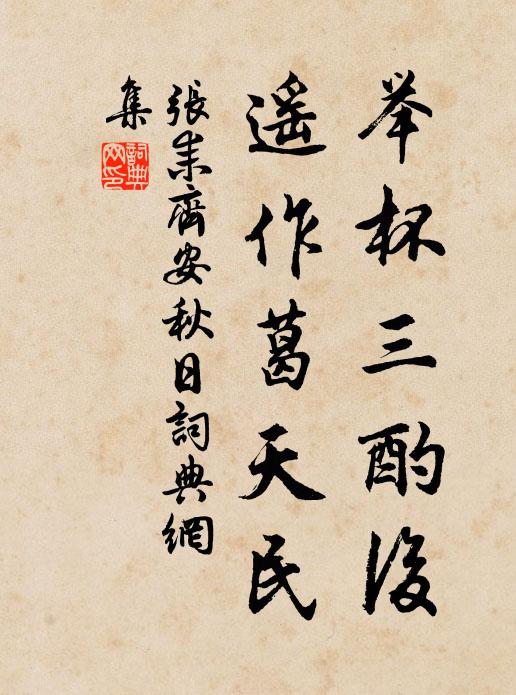 举杯三酌後
遥作葛天民
張耒齊安秋日詞典網
集
詞典
网印